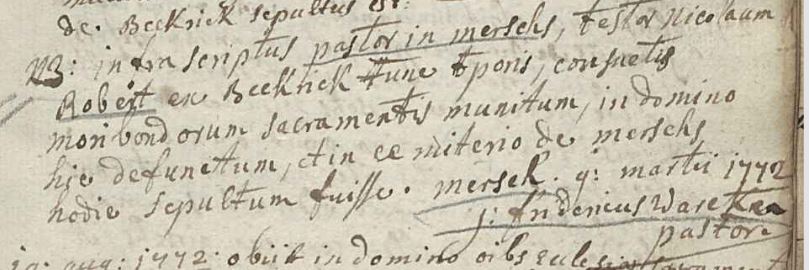 de Beckrick sepultus est.
NB: infra scriptus pastor in merschs, testor Nicolaum
Robert ex Beckrick tunc tporis, consuetis
moribondorum sacramentis munitum, in domino
hie defunctum, et in cemiterio de merschs
hodie sepultum fuisse. mersch. 9: martii 1772
j: fridericus
pastor.
19: aug: 1772: obiit in domino oibs